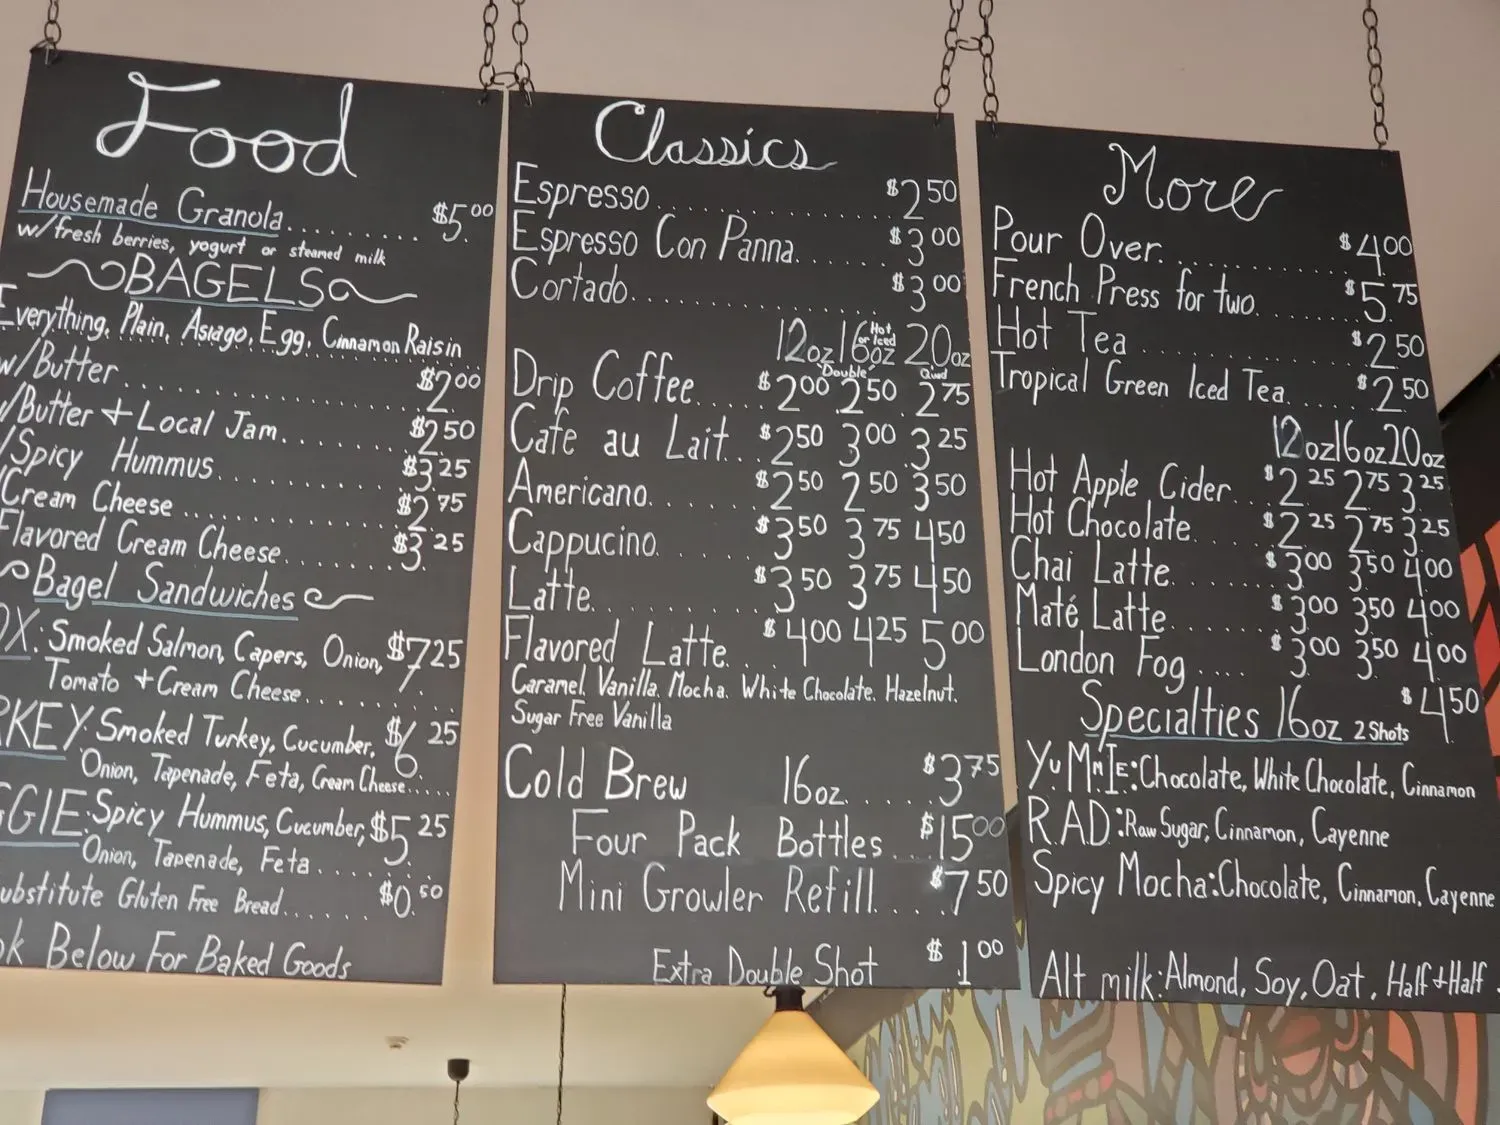 Food
Housemade Granola.......... $5.00
w/fresh berries, yogurt or steamed milk
BAGELS
Everything, Plain, Asiago, Egg, Cinnamon Raisin
w/Butter.......... $2.00
w/Butter + Local Jam....... $2.50
/Spicy Hummus.......... $3.25
/Cream Cheese.......... $2.75
Flavored Cream Cheese....... $3.25
Bagel Sandwiches
OX: Smoked Salmon, Capers, Onion, $7.25
Tomato + Cream Cheese..........
RKEY: Smoked Turkey, Cucumber, $6.25
Onion, Tapenade, Feta, Cream Cheese.....
GGIE: Spicy Hummus, Cucumber, $5.25
Onion, Tapenade, Feta........
ubstitute Gluten Free Bread...... $0.50
ok Below For Baked Goods
Classics
Espresso.......... $2.50
Espresso Con Panna....... $3.00
Cortado.......... $3.00
Hot or Iced
12oz 16oz 20oz
Double Quad
Drip Coffee... $2.00 2.50 2.75
Cafe au Lait... $2.50 3.00 3.25
Americano..... $2.50 2.50 3.50
Cappucino..... $3.50 3.75 4.50
Latte.......... $3.50 3.75 4.50
Flavored Latte... $4.00 4.25 5.00
Caramel, Vanilla, Mocha, White Chocolate, Hazelnut,
Sugar Free Vanilla
Cold Brew 16oz...... $3.75
Four Pack Bottles... $15.00
Mini Growler Refill..... $7.50
Extra Double Shot $1.00
More
Pour Over.......... $4.00
French Press for two........ $5.75
Hot Tea.......... $2.50
Tropical Green Iced Tea..... $2.50
12oz 16oz 20oz
Hot Apple Cider... $2.25 2.75 3.25
Hot Chocolate..... $2.25 2.75 3.25
Chai Latte....... $3.00 3.50 4.00
Maté Latte....... $3.00 3.50 4.00
London Fog.... $3.00 3.50 4.00
Specialties 16oz 2 Shots $4.50
Yu.M.M.I.E: Chocolate, White Chocolate, Cinnamon
R.A.D: Raw Sugar, Cinnamon, Cayenne
Spicy Mocha: Chocolate, Cinnamon, Cayenne
Alt milk: Almond, Soy, Oat, Half + Half